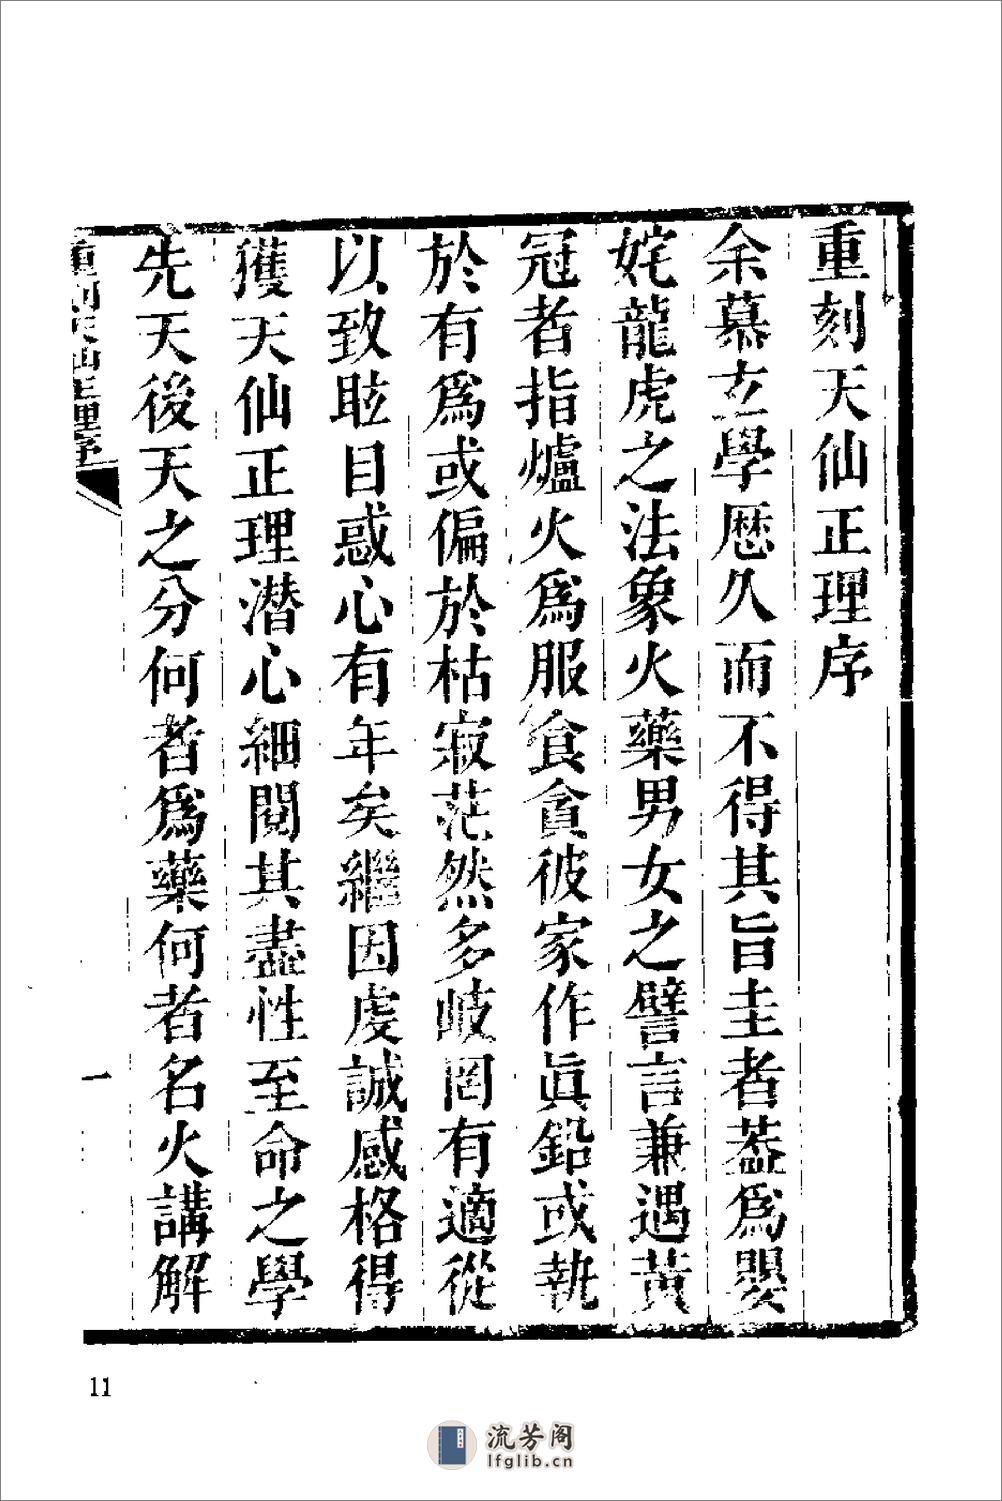 重刻天仙正理序
余慕玄學歷久而不得其旨圭者葢爲嬰
姹龍虎之法象火藥男女之譬言兼遇黃
冠者指爐火爲服食貪彼家作眞鉛或執
於有爲或偏於枯寂茫然多岐罔有適從
以致眩目惑心有年矣繼因虔誠感格得
獲天仙正理潛心細閱其盡性至命之學
先天後天之分何者爲藥何者名火講解
重刻天仙正理序
一
11
流芳阁
lfglib.cn